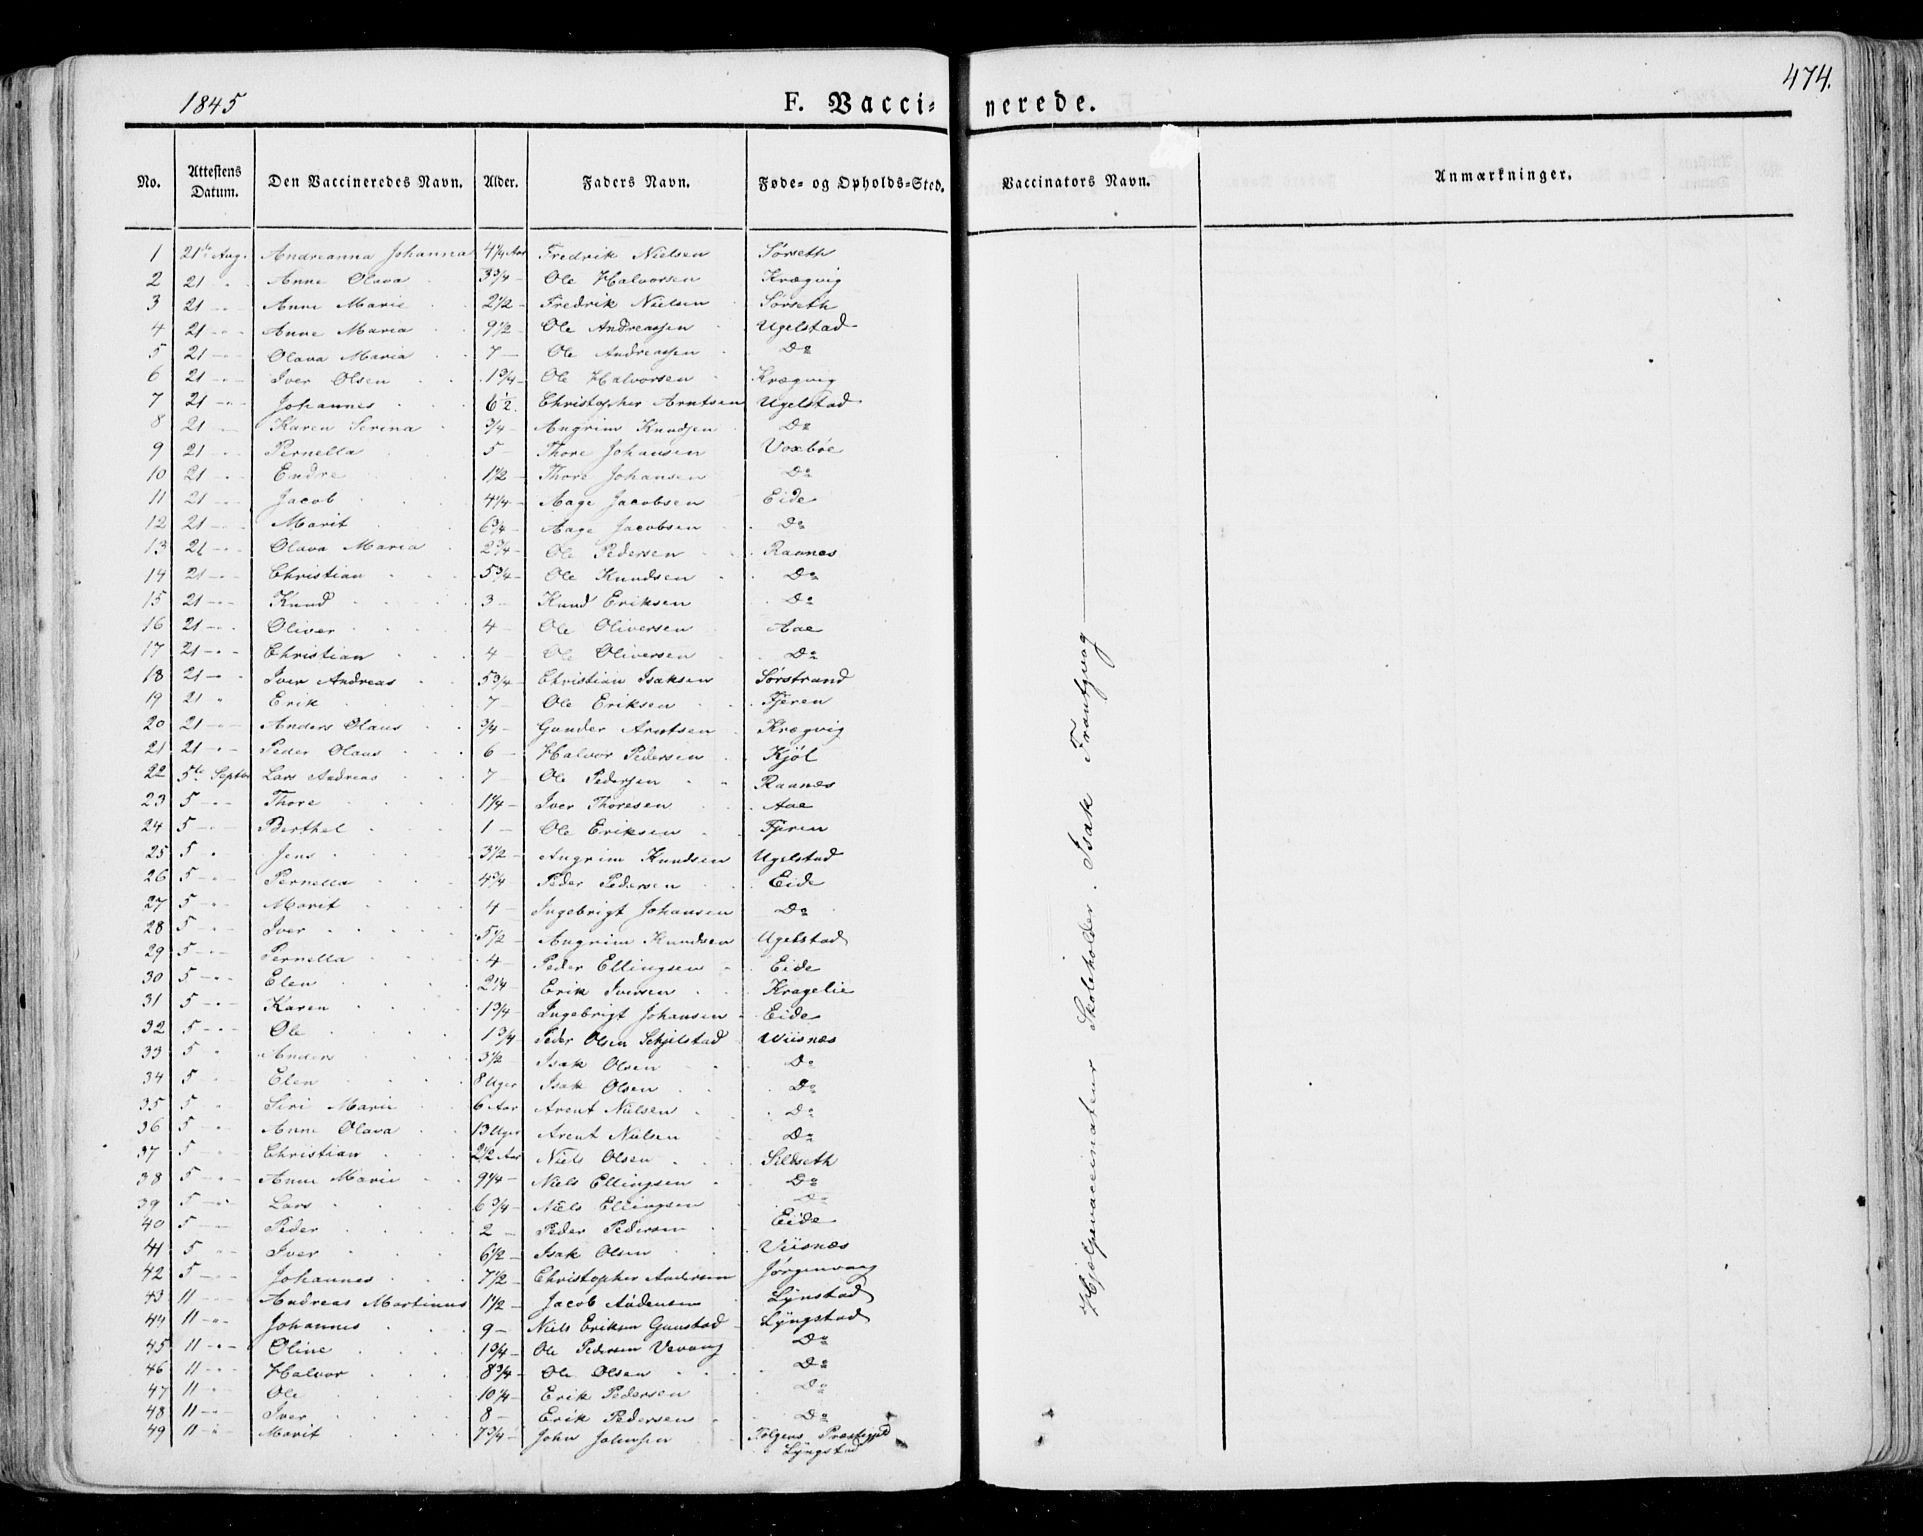 474.
1845 F. Vacci- nerede.
No. Attestens Datum. Den Vaccineredes Navn. Alder. Faders Navn. Føde- og Opholds-Sted. Vaccinators Navn. Anmærkninger.
1 21de Aug. Andreanna Johanna 4 1/4 Aar Fredrik Nielsen Sørseth
2 21 " Anne Olava 3 3/4 - Ole Halvorsen Krægvig
3 21 - " - Anne Marie 2 1/2 - Fredrik Nielsen Sørseth
4 21 - " - Anne Maria 9 1/2 - Ole Andreassen Ugelstad
5 21 - " - Olava Maria 7 - Ole Andreassen Do
6 21 - " - Iver Olsen 1 3/4 - Ole Halvorsen Krægvig
7 21 - " - Johannes 6 1/2 Christopher Arntsen Ugelstad
8 21 - " - Karen Serina 3/4 - Angrim Knudsen Do
9 21 - " - Pernella 5 - Thore Johansen Voxbøe
10 21 - " - Endre 1 1/2 - Thore Johansen Do
11 21 - " - Jacob 4 1/4 - Aage Jacobsen Eide
12 21 - " - Marit 6 3/4 - Aage Jacobsen Do
13 21 - " - Olava Maria 2 3/4 - Ole Pedersen Raanes
14 21 - " - Christian 5 3/4 - Ole Knudsen Do
15 21 - " - Knud 3 - Knud Eriksen Do
16 21 - " - Oliver 4 - Ole Oliversen Aae
17 21 - " - Christian 4 - Ole Oliversen Do
18 21 - " - Iver Andreas 5 3/4 - Christian Isaksen Sørstrand
19 21 " Erik 7 - Ole Eriksen Fjeren
20 21 - " - Anders Olaus 3/4 - Gunder Arntsen Krægvig
21 21 - " - Peder Olaus 6 - Halvor Pedersen Kjøl
22 5te Septbr Lars Andreas 7 - Ole Pedersen Raanes
23 5 - " - Thore 1 1/4 - Iver Thoresen Aae
24 5 - " - Berthel 1 - Ole Eriksen Fjeren
25 5 " Jens 3 1/2 - Angrim Knudsen Ugelstad
26 5 - " - Pernella 4 3/4 - Peder Pedersen Eide
27 5 - " - Marit 4 - Ingebrigt Johansen Do
28 5 - " - Iver 5 1/2 - Angrim Knudsen Ugelstad
29 5 - " - Pernella 4 - Peder Ellingsen Eide
30 5 - " - Elen 2 1/4 Erik Iversen Kragelie
31 5 - " - Karen 1 3/4 - Ingebrigt Johansen Eide
32 5 - " - Ole 1 3/4 Peder Olsen Schjelstad Wiisnæs
33 5 " Anders 3 1/2 Isak Olsen Do
34 5 - " - Elen 8 Uger Isak Olsen Do
35 5 " Siri Marie 6 Aar Arent Nielsen Do
36 5 - " - Anne Olava 13 Uger Arent Nielsen Do
37 5 - " - Christian 2 1/2 Aar Niels Olsen Sildseth
38 5 - " - Anne Marie 9 1/4 - Niels Ellingsen Do
39 5 - " - Lars 6 3/4 - Niels Ellingsen Do
40 5 - " - Peder 2 - Peder Pedersen Eide
41 5 " Iver 6 1/2 - Isak Olsen Viisnæs
42 5 - " - Johannes 7 1/2 - Christopher Andersen Jørgenvaag
43 11 - " - Andreas Martinus 1 1/2 - Jacob Andensen Lÿnstad
44 11 - " - Johannes 9 - Niels Eriksen Gunstad Lÿngstad
45 11 - " - Oline 1 3/4 - Ole Pedersen Vevang Do
46 11 - " - Halvor 8 3/4 - Ole Olsen Do
47 11 - " - Ole 10 1/4 - Erik Pedersen Do
48 11 - " - Iver 8 - Erik Pedersen Do
49 11 - " - Marit 7 3/4 - John Johnsen Præstegjeld
Lÿngstad
Hjelpevaccinateur Skoleholder Isak Frantzvaag